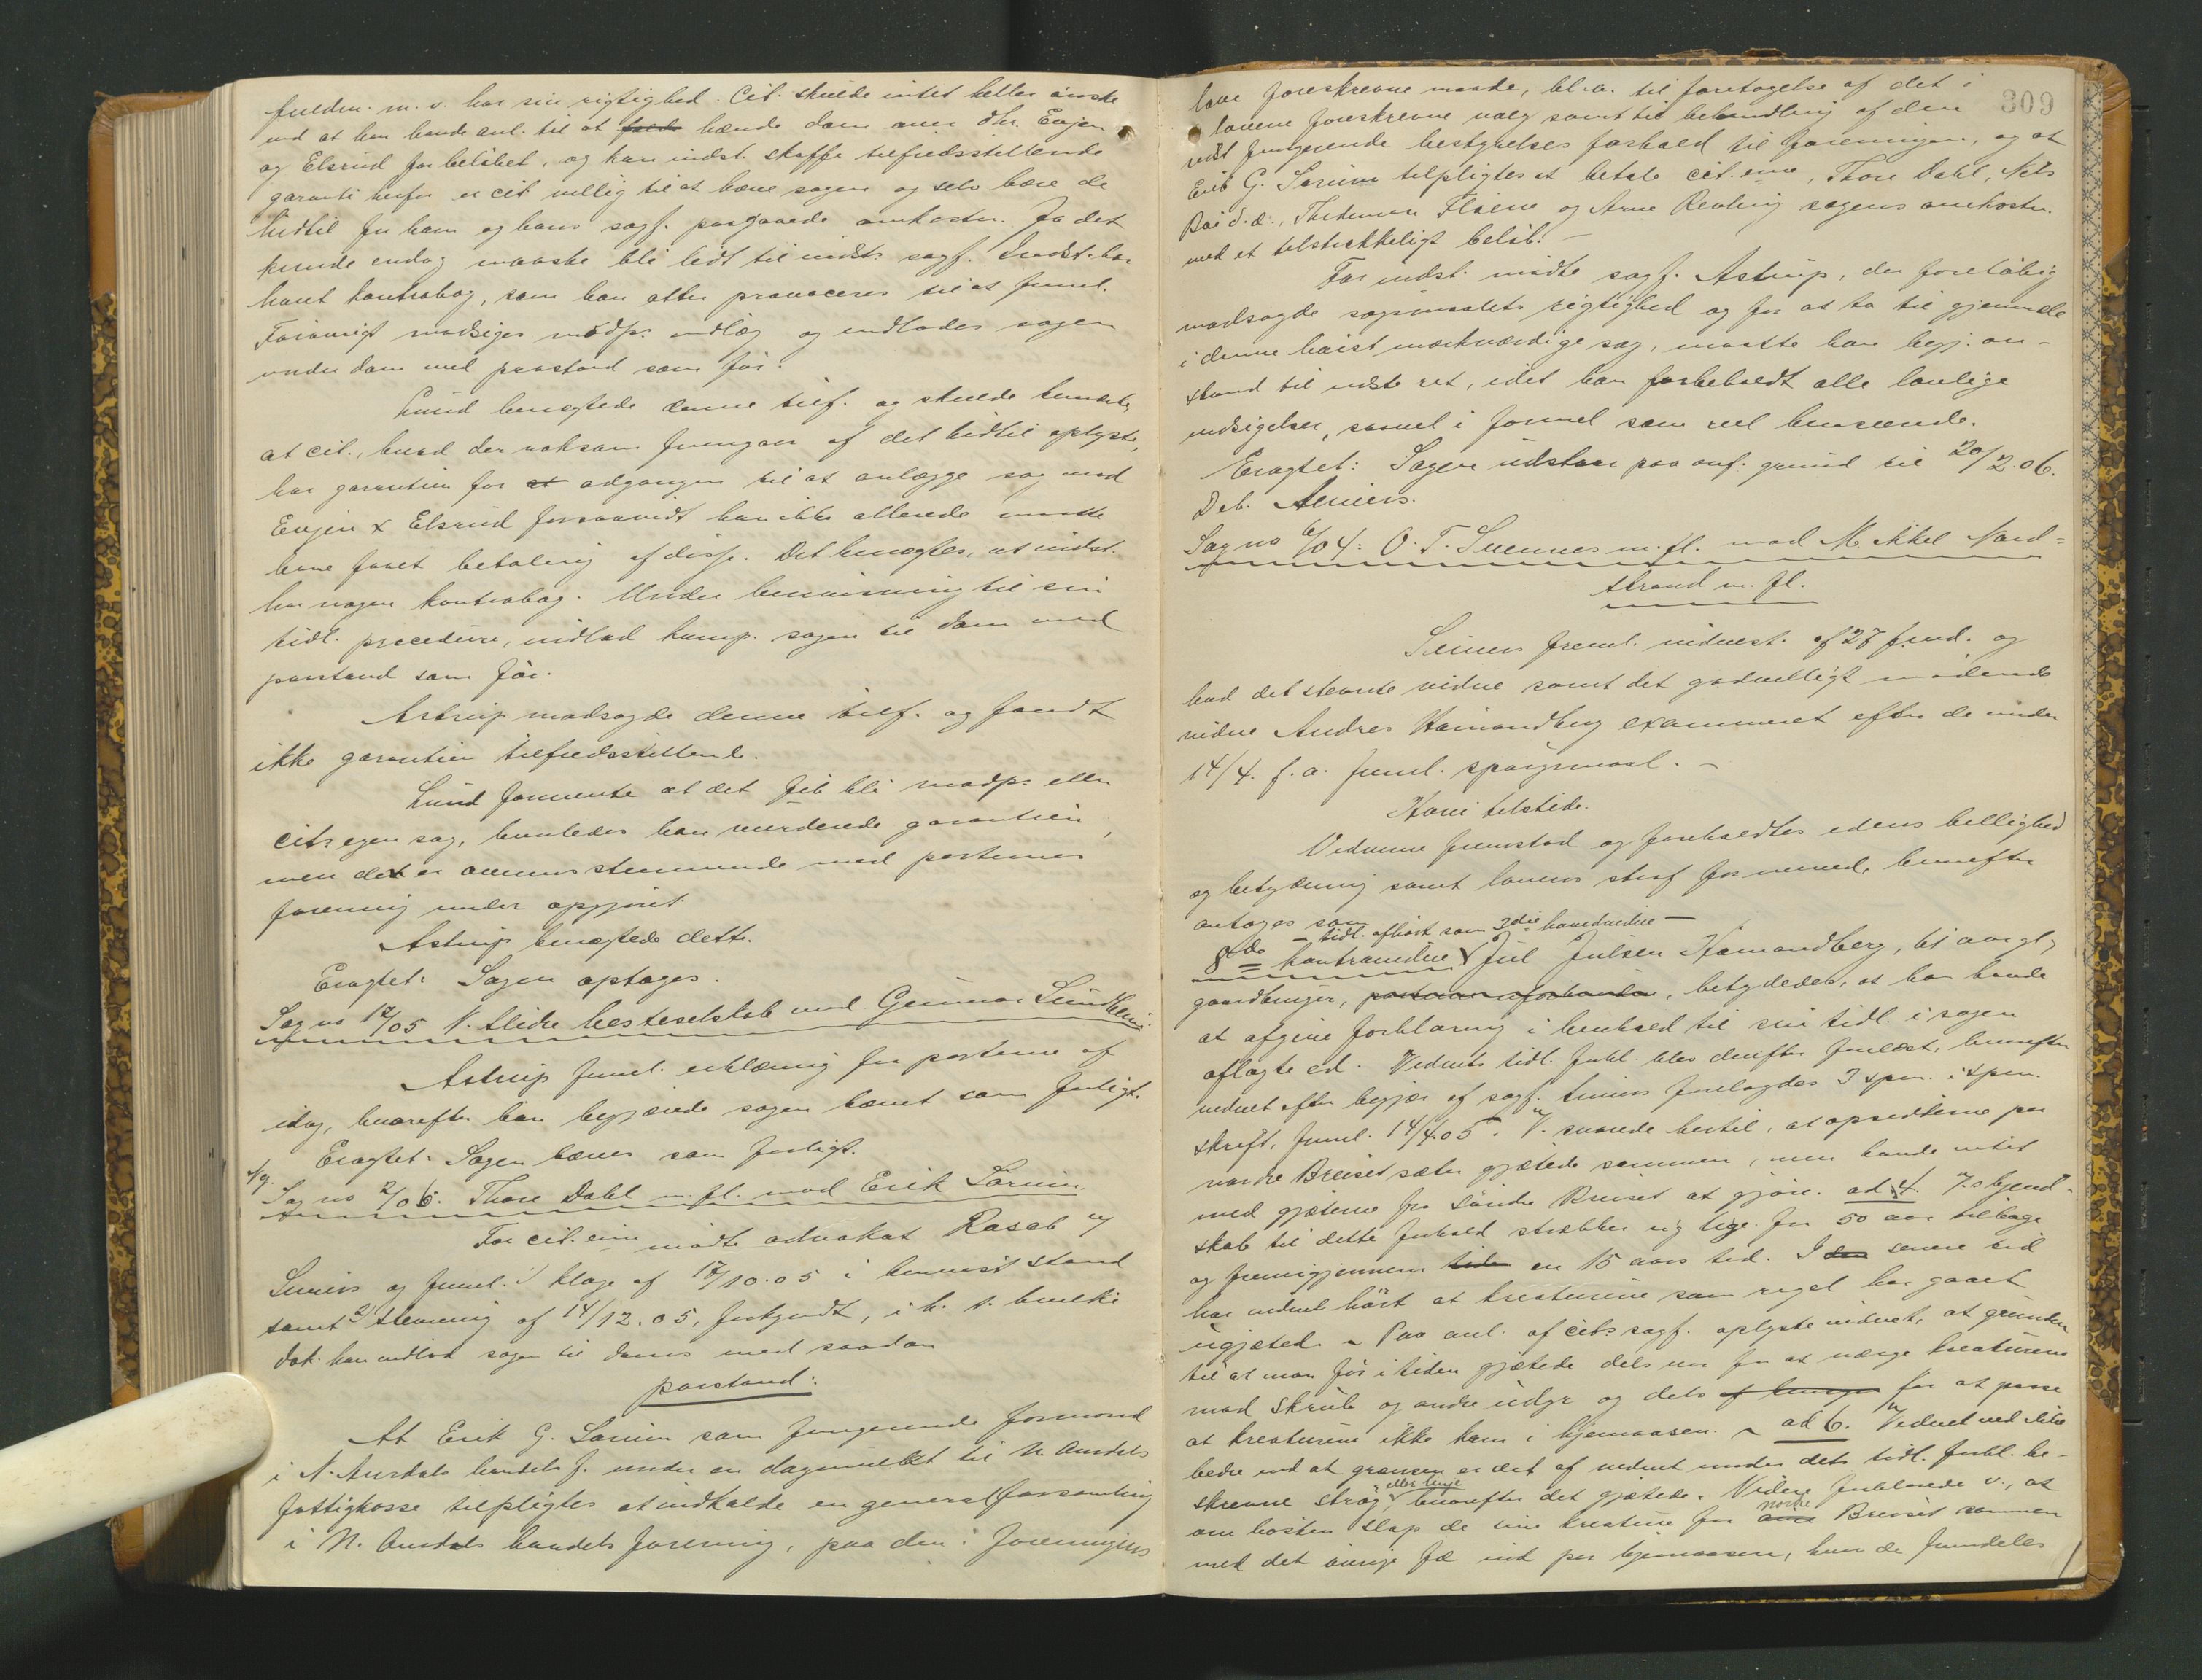 fuldm. m. v. har sin rigtighed. Cit. skulde intet heller ønske
end at han havde anl. til at hænde dom over dhr. Evjen
og Elsrud for beløbet, og kan indst. skaffe tilfredsstillende
garanti herfor er cit. villig til at hæve sagen og selv bære de
hidtil for ham og hans sagf. paagaaede omkostn. Ja det
kunde endog maaske bli lidt til indst's sagf. Indst. har
havt kontrabog, som han atter provoceres til at freml.
Forøvrigt modsiges modp's indlæg og indlades sagen
under dom med paastand som før.
Lund benægtede denne tilf. og skulde bemærke,
at cit., hvad der noksom fremgaar af det hidtil oplyste,
har garantien for adgangen til at anlægge sag mod
Evjen & Elsrud forsaavidt han ikke allerede maatte
have faaet betaling af disse. Det benægtes, at indst.
har nogen kontrabog. Under henvisning til sin
tidl. procedure, indlod komp. sagen til dom med
paastand som før.
Astrup modsagde denne tilf. og fandt
ikke garantien tilfredsstillende.
Lund formente at det fik bli modp's eller
cit's egen sag, hvorledes han vurderede garantien,
men det er overensstemmende med parternes
forening under opgjøret.
Astrup benægtede dette.
Eragtet: Sagen optages.
Sag no 12/05 V. Slidre hesteselskab mod Gunnar Sundheim.
Astrup freml. erklæring fra parterne af
idag, hvorefter han begjærede sagen hævet som forligt.
Eragtet: Sagen hæves som forligt.
Sag no 2/06. Thore Dahl m. fl. mod Erik Sørum.
For cit.erne mødte advokat Rasch v/
Leniers og freml. 1) klage af 17/10.05 i henvist stand
samt 2) stevning af 14/12.05, forkyndt, i h. t. hvilke
dok. han indlod sagen til doms med saadan
paastand:
At Erik G. Sørum som fungerende formand
i N. Aurdals handelsf. under en dagsmulkt til N. Aurdals
fattigkasse tilpligtes at indkalde en generalforsamling
i N. Aurdals handelsforening, paa den i foreningens
309
love foreskrevne maade, bl.a. til foretagelse af det i
lovene foreskrevne valg samt til behandling af den
nu fungerende bestyrelses forhold til foreningen, og at
Erik G. Sørum tilpligtes at betale cit.erne, Thore Dahl, Nils
Bøe d. æ., Thidemann Fløene og Arne Revling sagens omkostn.
med et tilstrækkeligt beløb. –
For indst. mødte sagf. Astrup, der foreløbig
modsagde søgsmaalets rigtighed og for at ta til gjenmæle
i denne høist mærkværdige sag, maatte han begj. an-
stand til næste ret, idet han forbeholdt alle lovlige
indsigelser, saavel i formel som reel henseende.
Eragtet: Sagen udstaar paa anf. grund til 20/2.06.
Deb. Leniers.
Sag no 6/04: O. T. Svennes m. fl. mod Mikkel Nord-
strand m. fl.
Leniers freml. vidnest. af 27 f. md. og
bad det stevnte vidne samt det godvilligt mødende
vidne Andres Hamandberg examineret efter de under
14/4. f. a. freml. spørgsmaal. –
Hove tilstede.
Vidnerne fremstod og foreholdtes edens hellighed
og betydning samt lovens straf for mened, hvorefter
antoges som
– tidl. afhørt som 3die hovedvidne –
8de kontravidne Jul Julsen Hamandberg, 61 aar gl,
gaardbruger, betydedes, at han havde
at afgive forklaring i henhold til sin tidl. i sagen
aflagte ed. Vidnets tidl. forkl. blev derefter forelæst, hvorefter
vidnet efter begjær af sagf. Leniers forelagdes 3 spm. i spm.
skrift, freml. 14/4.05. V. svarede hertil, at opsidderne paa
nordre Breiset sæter gjætede sammen, men havde intet
med gjæterne fra søndre Breiset at gjøre. ad. 4. V.s kjend-
skab til dette forhold strækker sig lige fra 50 aar tilbage
og fremigjennem en 15 aars tid. I senere tid
har vidnet hørt at kreaturene som regel har gaaet
ugjætet. – Paa anl. af cit's sagf. oplyste vidnet, at grunden
til at man før i tiden gjætede dels var for at værge kreaturene
mod skrub og andre udyr og dels for at passe
at kreaturene ikke kom i hjemaasen. – ad 6. Vidnet ved ikke
bedre end at grænsen er det af vidnet under dets tidl. forkl. be-
skrevne strøg eller linje, hvorefter det gjætede. Videre forklarede v., at
om høsten slap de sine kreature fra nordre Breiset sammen
med det øvrige fæ ind paa hjemaasen, hvor de fremdeles